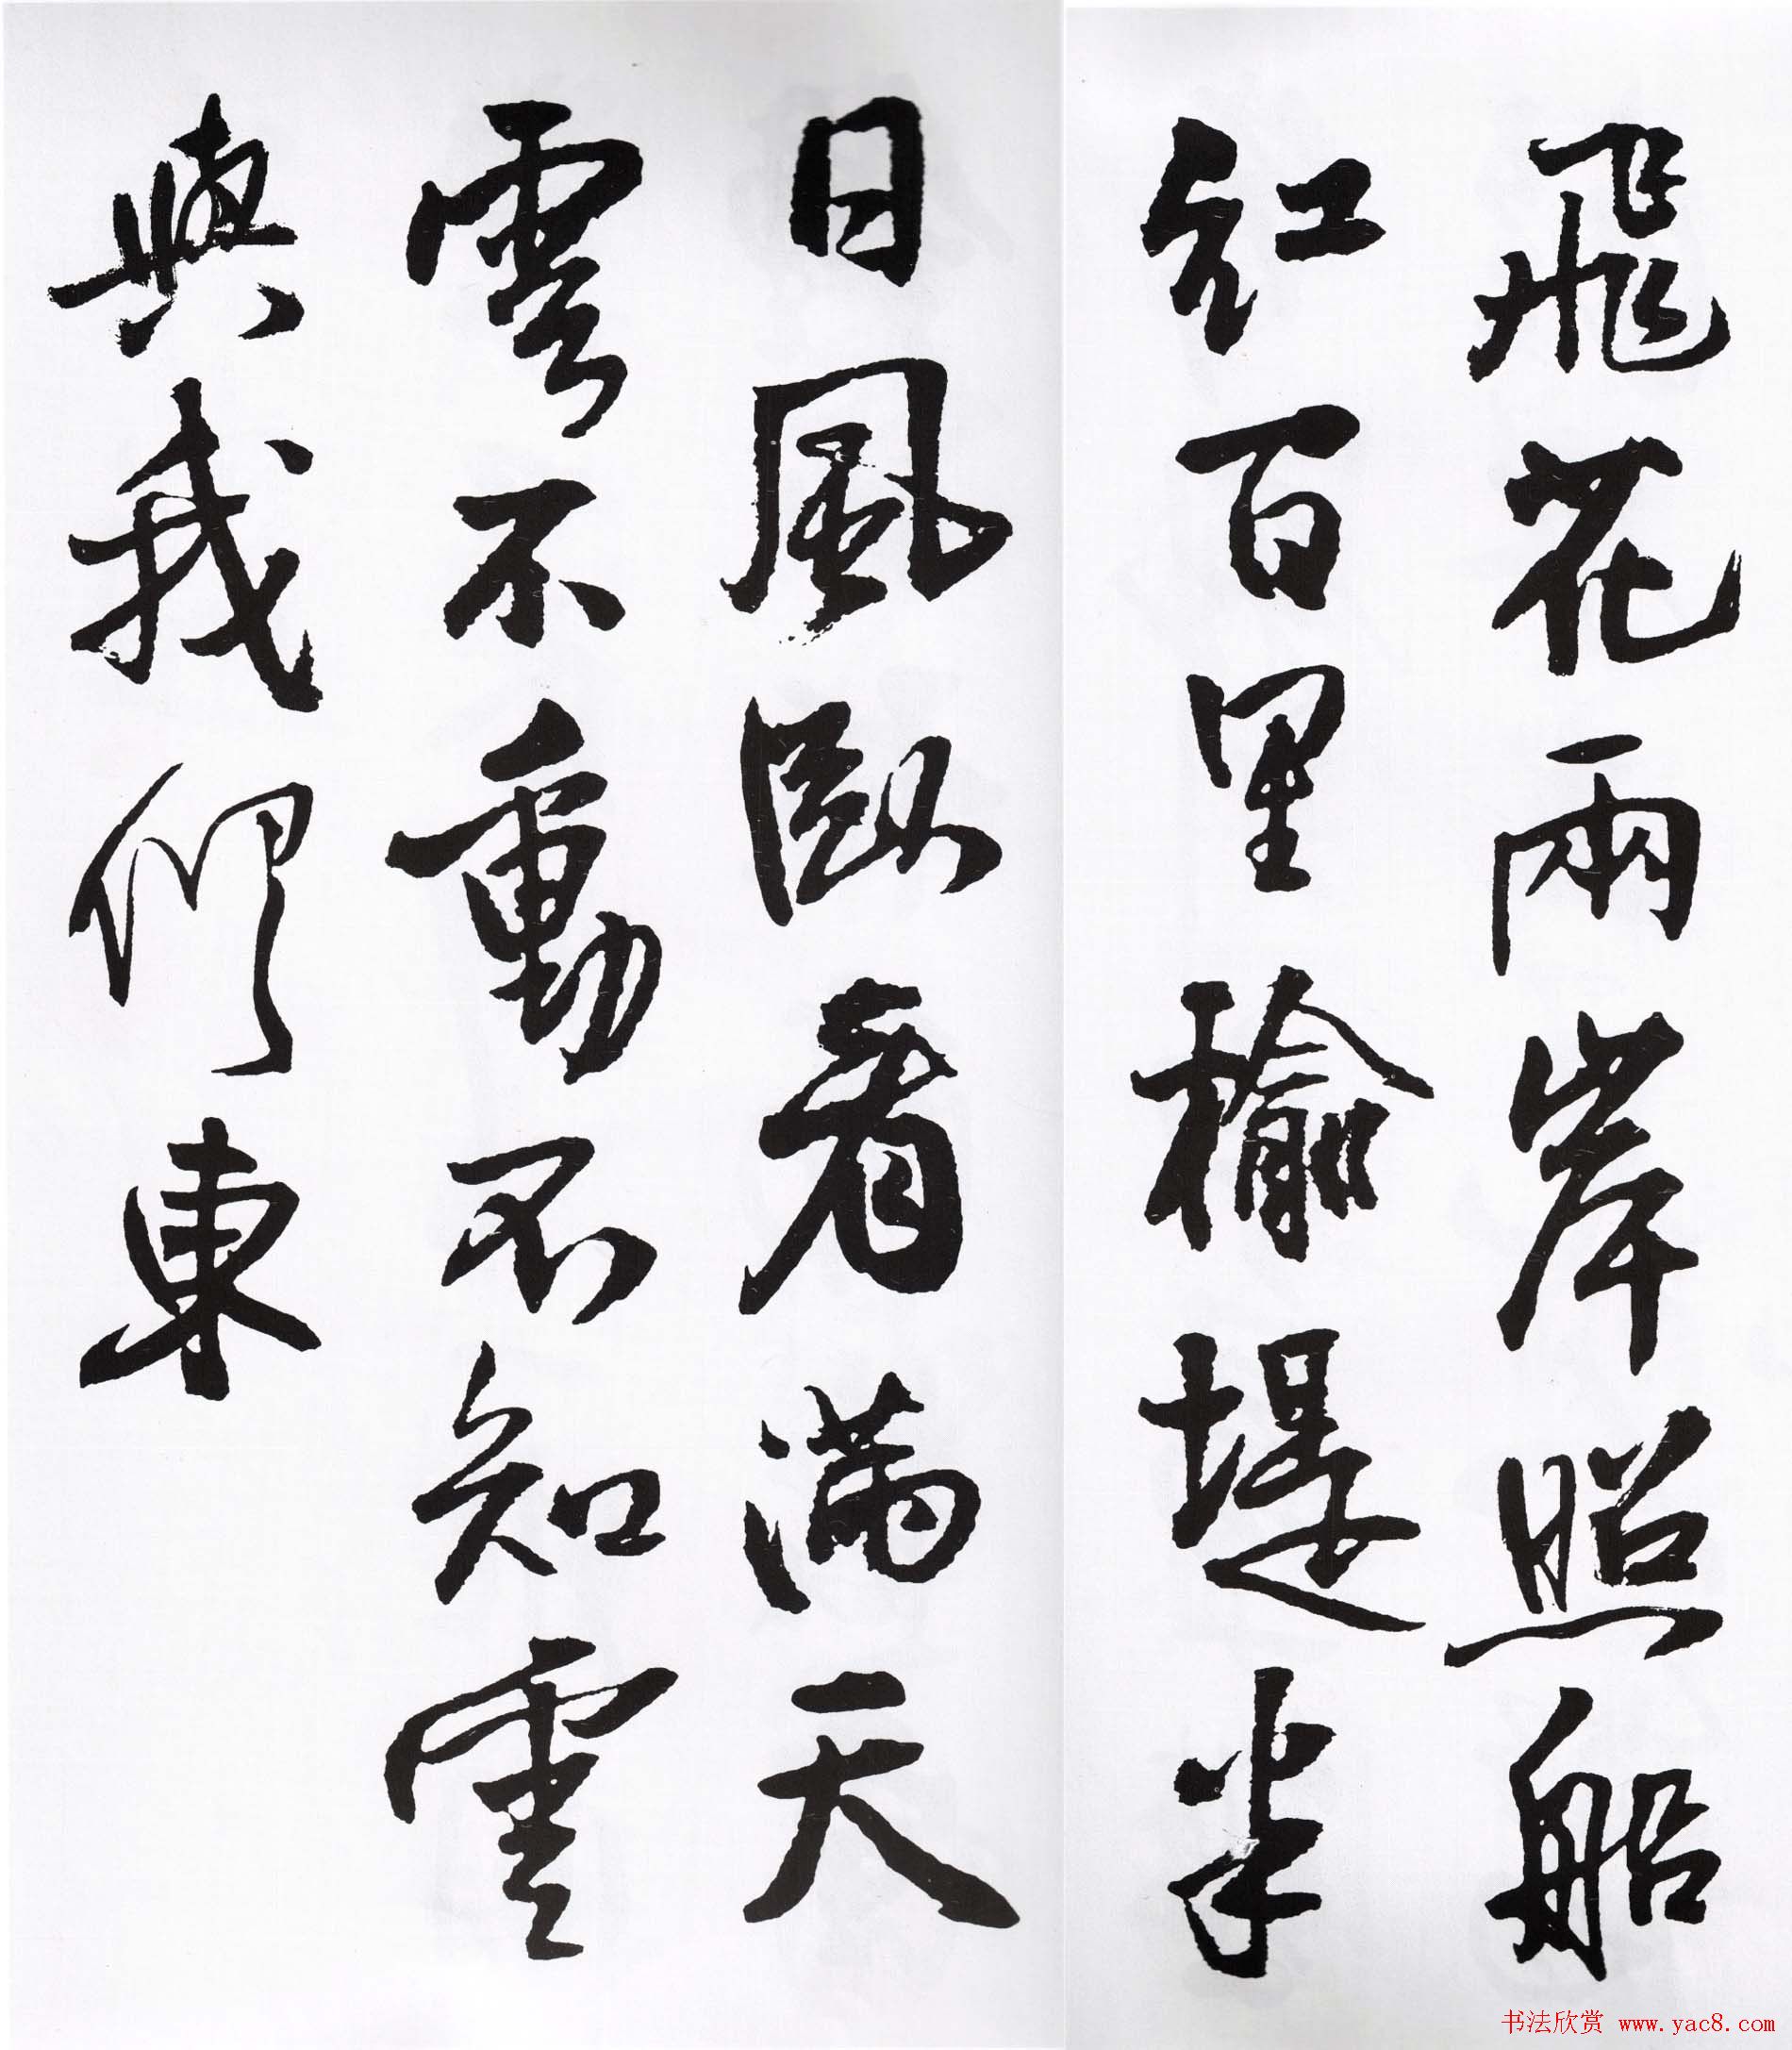 飛花兩岸照船
紅百里榆堤半
日風臥看滿天
雲不動不知雲
與我俱東
书法欣赏 www.yac8.com